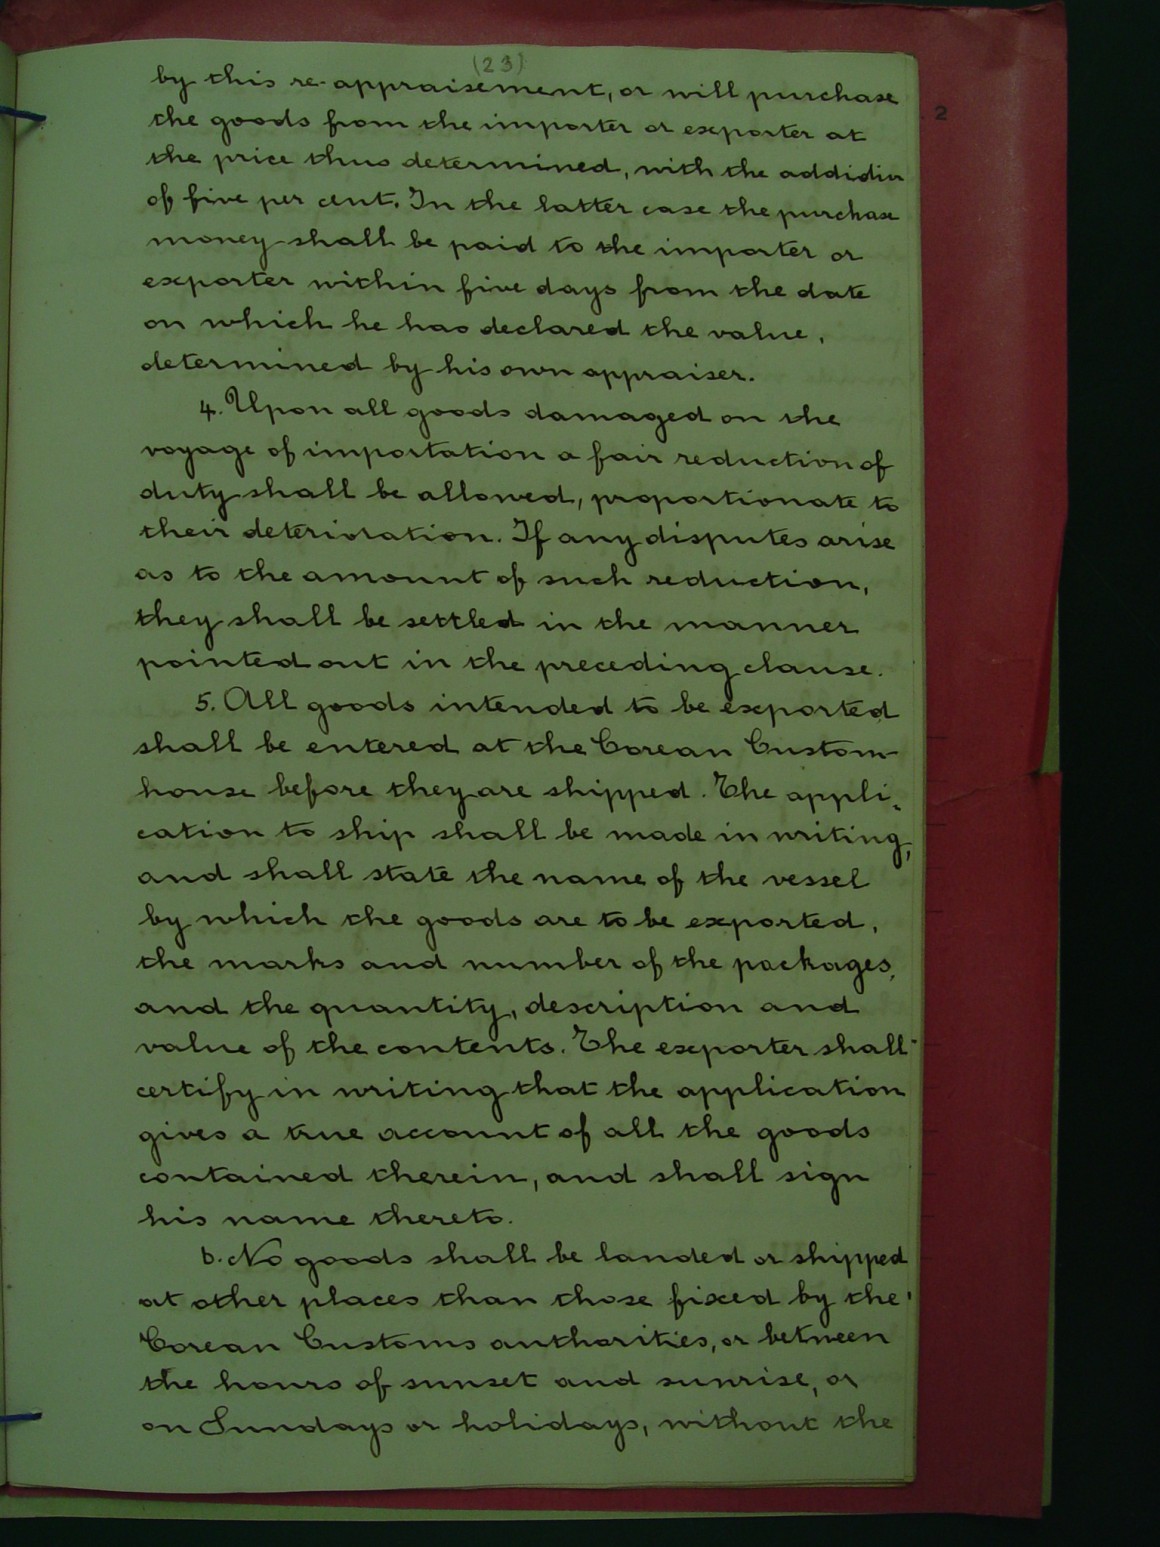 (23)
by this re-appraisement, or will purchase
the goods from the importer or exporter at
the price thus determined, with the addidion
of five per cent. In the latter case the purchase
money shall be paid to the importer or
exporter within five days from the date
on which he has declared the value,
determined by his own appraiser.
4. Upon all goods damaged on the
voyage of importation a fair reduction of
duty shall be allowed, proportionate to
their deterioration. If any disputes arise
as to the amount of such reduction,
they shall be settled in the manner
pointed out in the preceding clause.
5. All goods intended to be exported
shall be entered at the Corean Custom-
house before they are shipped. The appli-
cation to ship shall be made in writing,
and shall state the name of the vessel
by which the goods are to be exported,
the marks and number of the packages,
and the quantity, description and
value of the contents. The exporter shall
certify in writing that the application
gives a true account of all the goods
contained therein, and shall sign
his name thereto.
6. No goods shall be landed or shipped
at other places than those fixed by the
Corean Customs authorities, or between
the hours of sunset and sunrise, or
on Sundays or holidays, without the
2